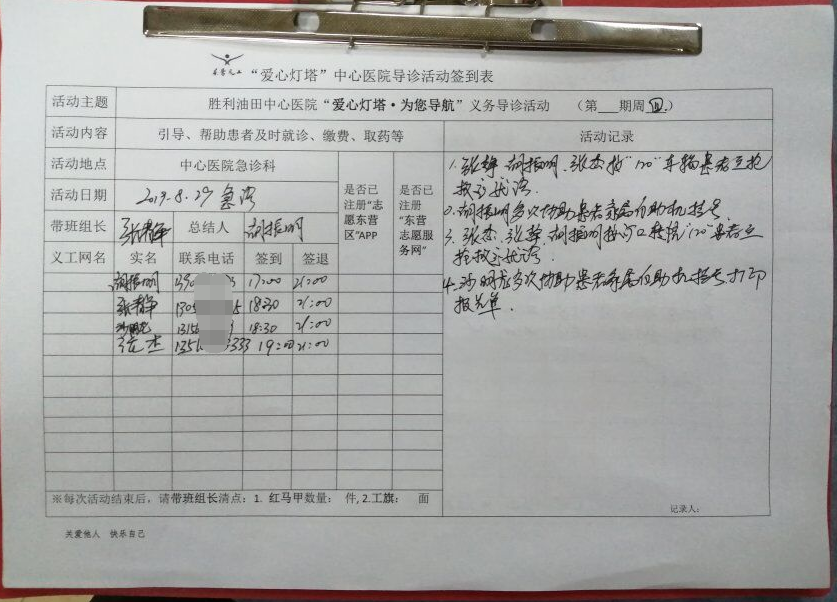 “爱心灯塔”中心医院导诊活动签到表
活动主题 胜利油田中心医院“爱心灯塔·为您导航”义务导诊活动 （第 期周四）
活动内容 引导、帮助患者及时就诊、缴费、取药等 活动记录
活动地点 中心医院急诊科
活动日期 2019.8.29 急诊
是否已注册“志愿东营区”APP
是否已注册“东营志愿服务网”
带班组长 张静 总结人 胡振明
义工网名 实名 联系电话 签到 签退
胡振明 17:00 21:00
张静 18:30 21:00
18:30 21:00
张杰 19:00 21:00
1. 张静、胡振明、张杰 “120”车 患者
胡振明多次协助患者家属自助机挂号.
3. 张杰、张静、胡振明 “120”患者
4. 多次协助患者家属自助机挂号、打印
报告单.
※每次活动结束后，请带班组长清点：1. 红马甲数量： 件, 2.工旗： 面
记录人：
关爱他人 快乐自己